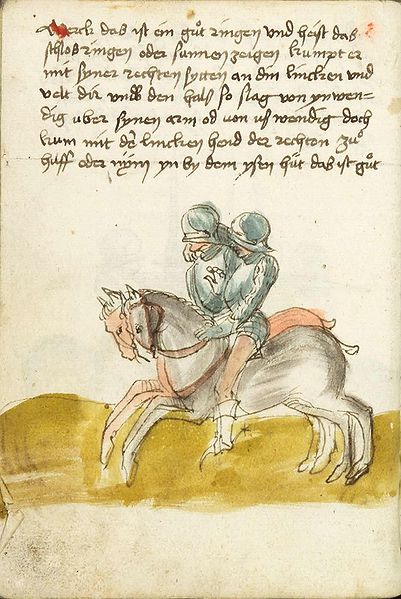 Merck das ist ein guͦt ringen vnd heist das
schlos ringen oder sunnen zeigen kumpt er
mit syner rechten sytten an din lincken vnd
velt dir vmb den hals so slag von ynwen=
dig vber synen arm od von vswendig doch
kum mit der lincken hend der rechton zuͦ
huff oder nym yn by dem ysen huͦt das ist guͦt